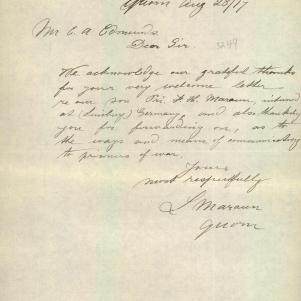 Guom Aug 28/17
Mr C. A. Edmunds
3249
Dear Sir.
We acknowledge our grateful thanks
for your very welcome letter
re our son Pri. F. H. Maraun, interned
at Germany, and also thanking
you for forwarding on, as to
the ways and means of communicating
to prisoners of war.
Yours
most respectfully
S Maraun
Guom